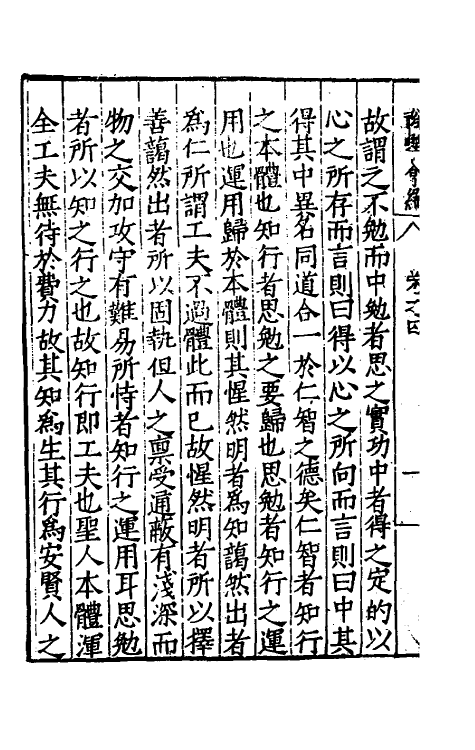 卷之四
故謂之不勉而中勉者思之實功中者得之定的以
心之所存而言則曰得以心之所向而言則曰中其
得其中異名同道合一於仁智之德矣仁智者知行
之本體也知行者思勉之要歸也思勉者知行之運
用也運用歸於本體則其惺然明者為知藹然出者
為仁所謂工夫不過體此而已故惺然明者所以擇
善藹然出者所以固執但人之稟受通蔽有淺深而
物之交加攻守有難易所恃者知行之運用耳思勉
者所以知之行之也故知行即工夫也聖人本體渾
全工夫無待於費力故其知為生其行為安賢人之